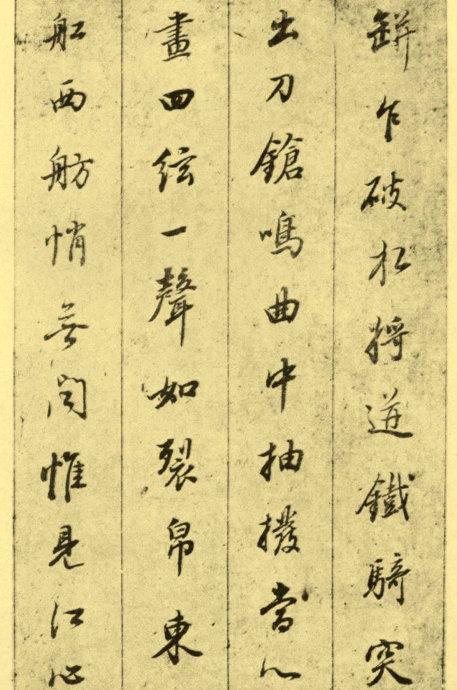 缾乍破水將迸鐵騎突
出刀鎗鳴曲中抽撥當心
畫四絃一聲如裂帛東
舡西舫悄无聞惟見江心